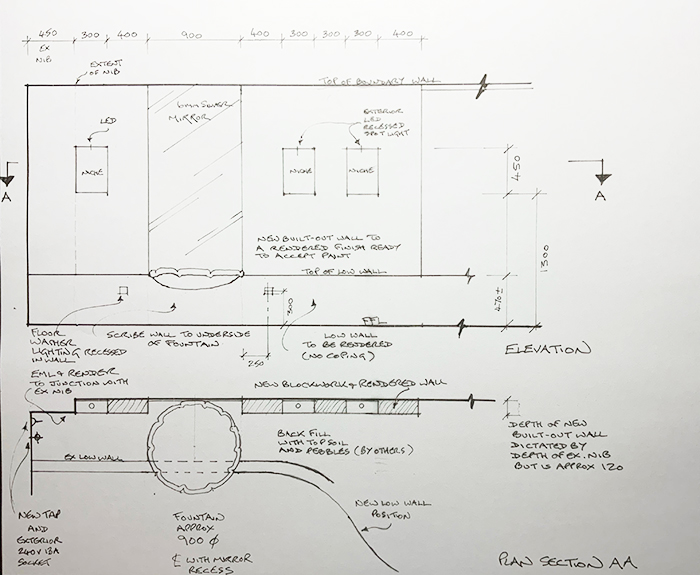 450 300 400 900 400 300 300 300 400
EX
NIB
EXTENT
OF NIB
TOP OF BOUNDARY WALL
6mm SILVER
MIRROR
LED
EXTERIOR
LED
RECESSED
SPOT LIGHT
NICHE
NICHE
NICHE
450
A
A
1300
NEW BUILT-OUT WALL TO
A RENDERED FINISH READY
TO ACCEPT PAINT
TOP OF LOW WALL
470 ±
300
FFL
FLOOR
WASHER
LIGHTING RECESSED
IN WALL
SCRIBE WALL TO UNDERSIDE
OF FOUNTAIN
LOW WALL
TO BE RENDERED
(NO COPING)
250
ELEVATION
EML & RENDER
TO JUNCTION WITH
EX NIB
NEW BLOCKWORK & RENDERED WALL
BACK FILL
WITH TOP SOIL
AND PEBBLES (BY OTHERS)
DEPTH OF NEW
BUILT-OUT WALL
DICTATED BY
DEPTH OF EX. NIB
BUT IS APPROX 120
EX LOW WALL
NEW TAP
AND
EXTERIOR
240V 13A
SOCKET
FOUNTAIN
APPROX
900 ϕ
℄ WITH MIRROR
RECESS
NEW LOW WALL
POSITION
PLAN SECTION AA